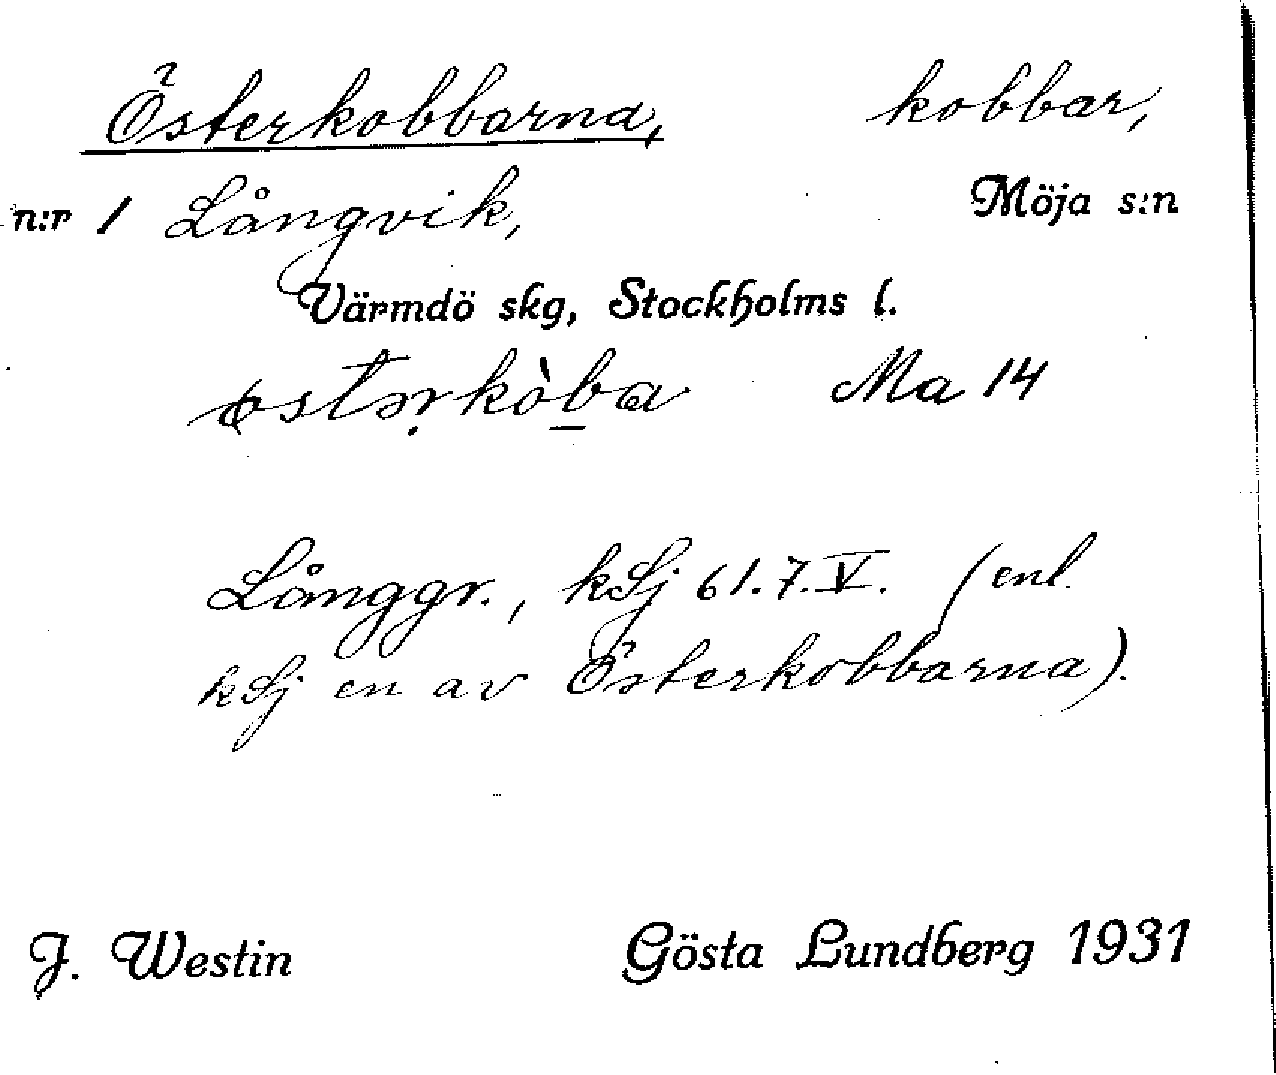 Österkobbarna, kobbar,
n:r 1 Långvik, Möja s:n
Värmdö skg, Stockholms l.
østərkòba Ma 14
Långgr., kSj 61.7.V. (enl.
kSj en av Österkobbarna).
J. Westin Gösta Lundberg 1931